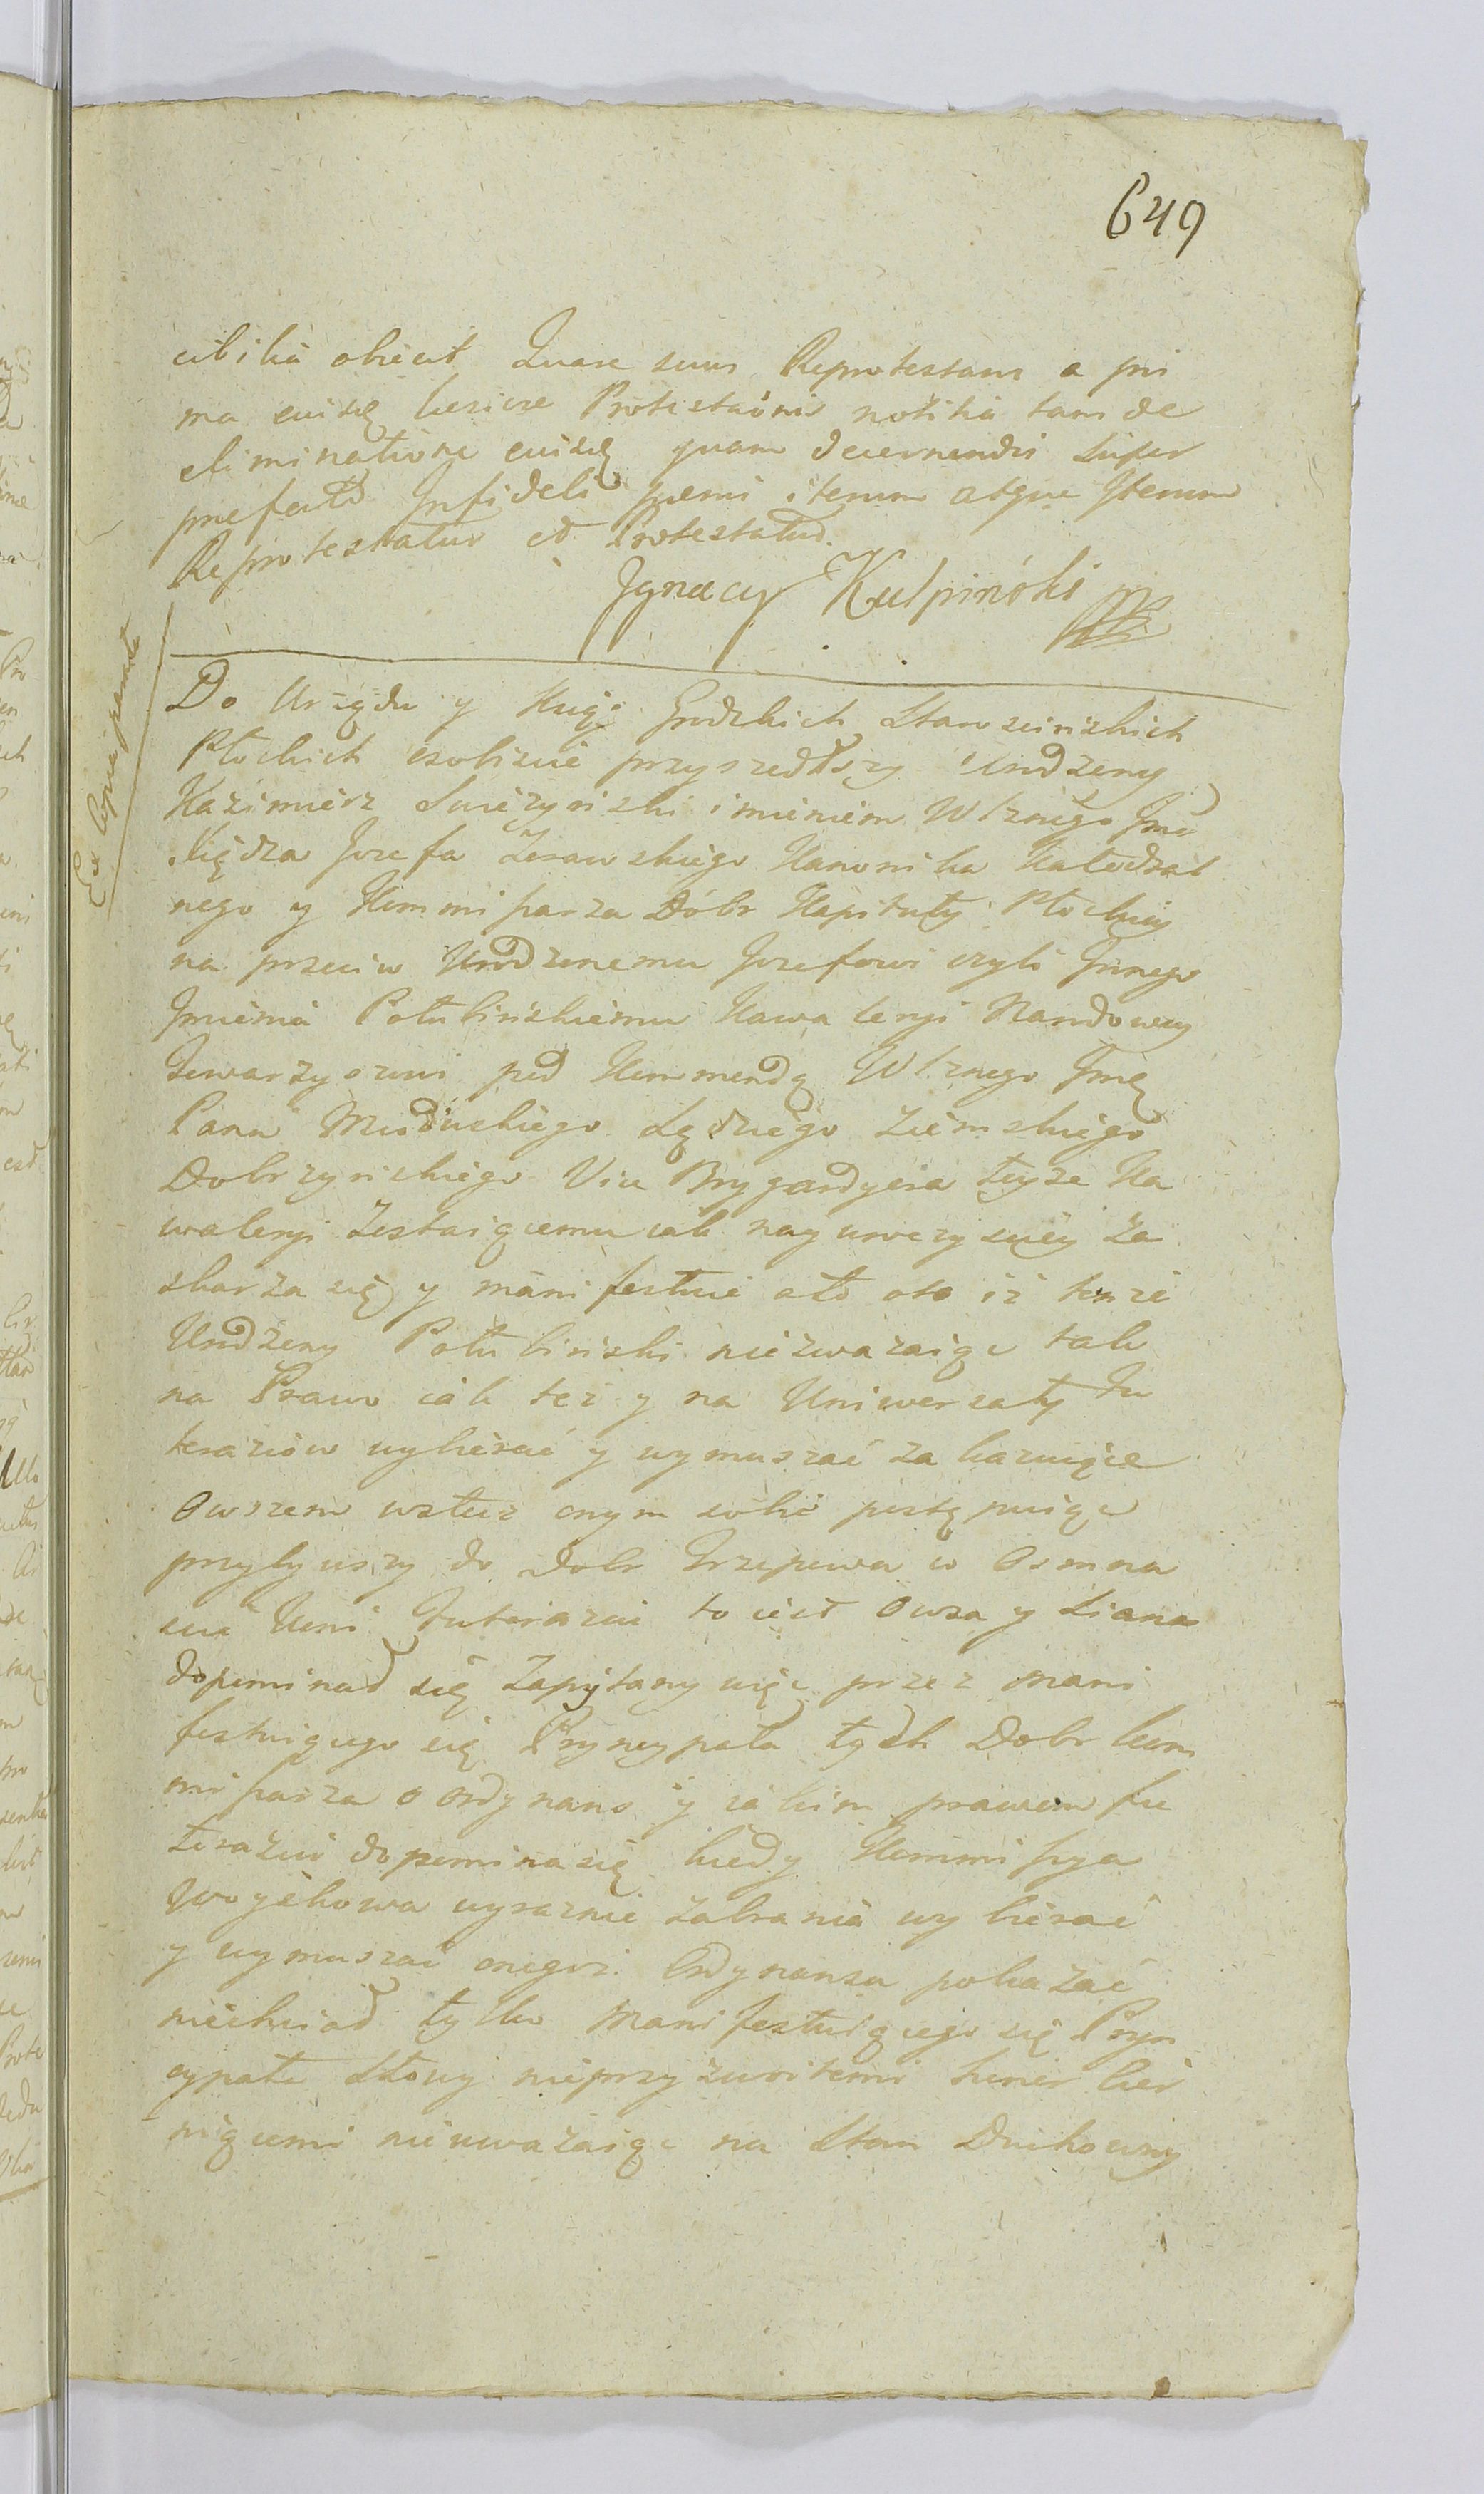 649
obiecit Quare suus Reprotestans a pri
ma eiusdę Protestaōnis notitia tam de
eliminatione eiusdę quam decernendis super
prefecto Infideli iterum atque Iterum
Reprotestatur et Protestatur.
Jgnacy Kulpinski
Ex
Do Urzędu y Xiąg Grodzkich Starościńskich
Płockich osobiscie przyszedłszy Urodzony
Kazimierz imieniem Wlznego Jmci
Xiędza Jozefa Zerawskiego Kanonika Katedral
nego y Kommissarza Dóbr Kapituły Płockiey
na przeciw Urodzonemu Jozefowi czyli Jnnego
Jmienia Potulińskiemu Kawaleryi Narodowey
Towarzyszowi pod Kommendą Wlznego Jmę
Pana Sędziego Ziemskiego
Dobrzyńskiego Vice Brygardyera teyże Ka
waleryi Zostaiącemu iak nayuroczyściey Za
skarza się y manifestuie a to oto iż tenze
Urodzony Potuliński niezwazaiąc tak
na Prawo iak też y na Uniwersały Fu
terazów wybierać y wymuszać zakazuiące
Owszem wstecz onym sobie postępuiąc
przybywszy do Dobr Trzepowa w Osmna
scie Koni Futerazu to iest Owsa y Siana
dopominał się Zapytany więc przez mani
festuiącego się Pryncypała tych Dobr kom
missarza o Ordynans y iakim prawem fu
terazu dopomina się kiedy Kommissya
Woyskowa wyraznie zabrania wybierać
y wymuszać onegoż. Ordynansu pokazać
niechciał tylko Manifestuiącego się Pryn
cypała Słowy nieprzyzwoitemi honor krz
niącemi nieuwazaiąc na Stan Duchowny